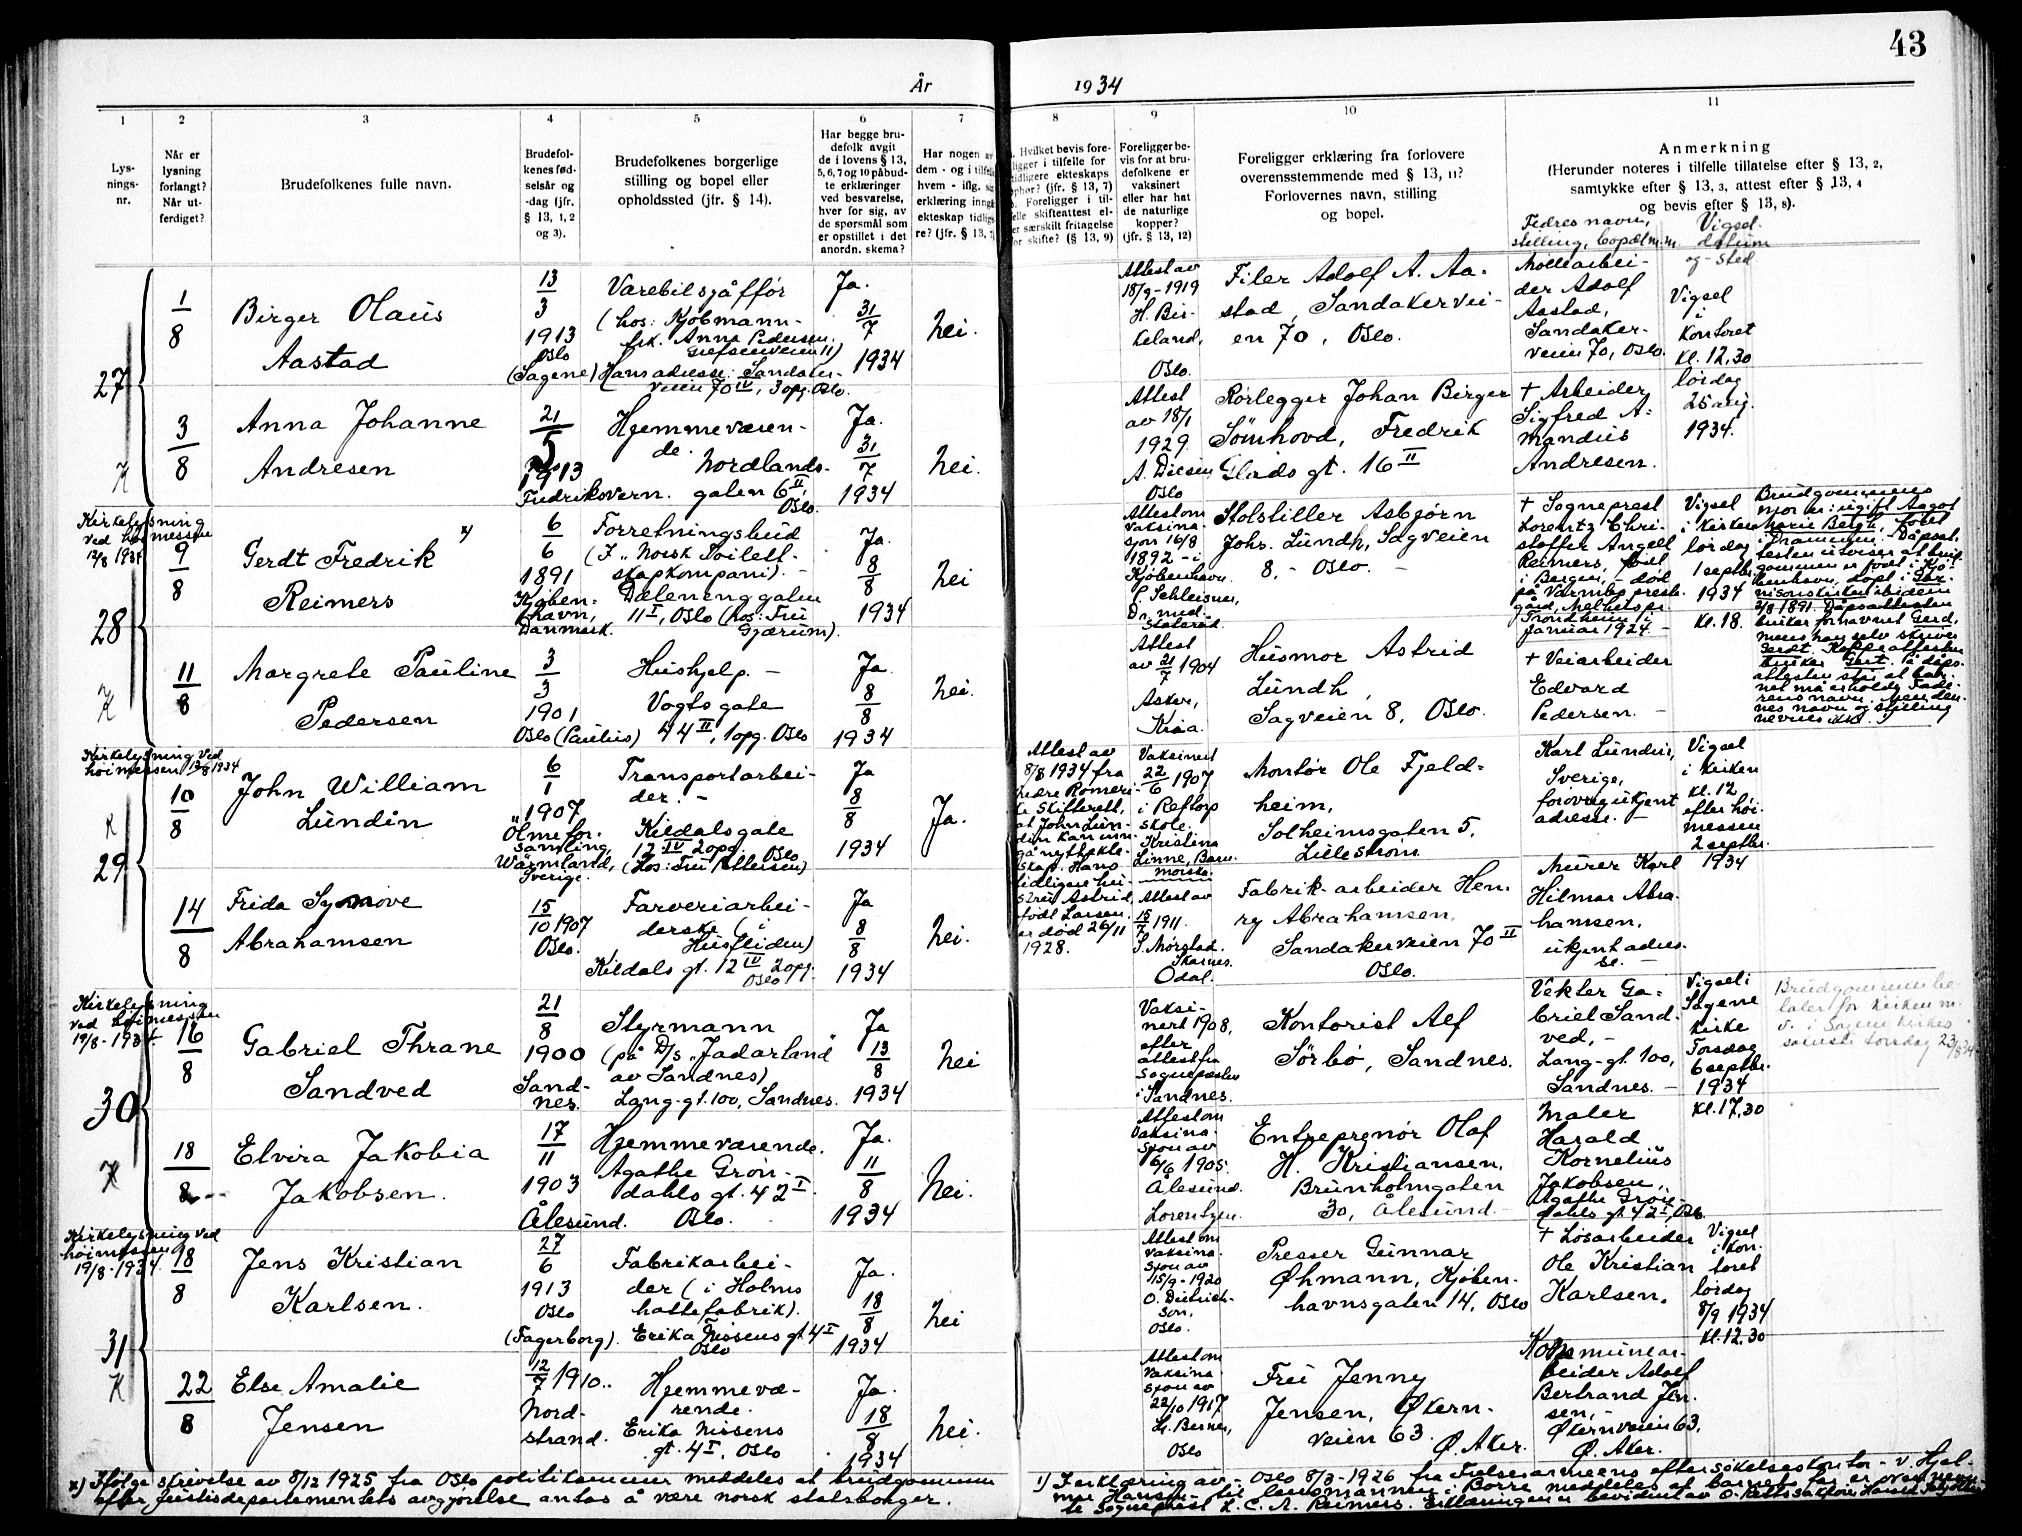 43
År 1934
1
2
3
4
5
6
7
8
9
10
11
Lys-
nings-
nr.
Når er
lysning
forlangt?
Når ut-
ferdiget?
Brudefolkenes fulle navn.
Brudefol-
kenes fød-
selsår og
-dag (jfr.
§ 13, 1, 2
og 3).
Brudefolkenes borgerlige
stilling og bopel eller
opholdssted (jfr. § 14).
Har begge bru-
defolk avgit
de i lovens § 13,
5, 6, 7 og 10 påbud-
te erklæringer
ved besvarelse,
hver for sig, av
de spørsmål som
er opstillet i det
anordn. skema?
Har nogen av
dem - og i tilfelle
hvem - iflg. sin
erklæring inngått
ekteskap tidlige-
re? (jfr. § 13, 7)
Hvilket bevis fore-
ligger i tilfelle for
tidligere ekteskaps
ophør? (jfr. § 13, 7)
Foreligger i til-
felle skifteattest el-
er særskilt fritagelse
for skifte? (§ 13, 9)
Foreligger be-
vis for at bru-
defolkene er
vaksinert
eller har hat
de naturlige
kopper?
(jfr. § 13, 12)
Foreligger erklæring fra forlovere
overensstemmende med § 13, 11?
Forlovernes navn, stilling
og bopel.
Anmerkning
(Herunder noteres i tilfelle tillatelse efter § 13, 2,
samtykke efter § 13, 3, attest efter § 13, 4
og bevis efter § 13, 8).
Fedres navn,
stilling, bopel m.m.
Vigsel-
datum
og -sted
27
1/8
Birger Olaus
Aastad
13/3
1913
Oslo
(Sagene)
Varebilsjåffør
(hos: Kjøbmann-
frk. Anna Pedersen,
Grefsenveien 11)
Hans adresse: Sandaker-
veien 70 IV, 3 opg. Oslo.
Ja.
31/7
1934
Nei.
Attest av
18/9-1919
H. Bir-
keland,
Oslo.
Filer Adolf A. Aa-
stad, Sandakervei-
en 70, Oslo.
Møllearbei-
der Adolf
Aastad,
Sandaker-
veien 70, Oslo.
Vigsel
i
kontoret
kl. 12,30
lørdag
25 aug.
1934.
K
3/8
Anna Johanne
Andresen
21/5
1913
Fredriksvern.
Hjemmeværen-
de.
Nordlands-
gaten 6 II,
Oslo.
Ja.
31/7
1934
Nei.
Attest
av 18/1
1929
A. Diesen
Oslo
Rørlegger Johan Birger
Sömhovd, Fredrik
Glads gt. 16 II
† Arbeider
Sigfred A-
mandus
Andresen.
Kirkelysning
ved høimessen
12/8 1934
28
9/8
Gerdt Fredrik x)
Reimers
6/6
1891
Kjøben-
havn,
Danmark.
Forretningsbud
(I „Norsk Toilett-
skapkompani). -
Dælenenggaten
11 I, Oslo (hos: Fru
Gjærum).
Ja.
8/8
1934
Nei
Attest om
vaksina-
sjon 16/8
1892 - i
Kjøbenhavn.
Dr. med.
Statsråd.
Stolstiller Asbjørn
Johs. Lundh, Sagveien
8, - Oslo. -
† Sogneprest
Lorentz Chri-
stoffer Angell
Reimers, født
i Bergen, - død
på Varmbo preste-
gård, Melhus pr.
Trondheim i
januar 1924. -
Vigsel
i kirken
lørdag
1 septbr.
1934
kl. 18.
Brudgommens
mor er: ugift Aagot
Marie Bergh, født
i Drammen. - Dåpsat-
testen utviser at brud-
gommen er født i Kjø-
benhavn, døpt i Gar-
nisonskirken ibidem
2/8 1891. Dåpsattesten
bruker fornavnet Gerd,
mens han selv skriver
Gerdt. Koppeattesten
bruker Gert. På dåps-
attesten står at bar-
net må erholde Fade-
rens navn, men den-
nes navn og stilling
nevnes ikke. 1)
K
11/8
Margrete Pauline
Pedersen
3/3
1901
Oslo (Paulus)
Hushjelp. -
Vogts gate
44 II, 1 opg. Oslo
Ja.
8/8
1934
Nei.
Attest
av 21/7 1904
Asker,
Kr.a.
Husmor Astrid
Lundh,
Sagveien 8, Oslo.
† Veiarbeider
Edvard
Pedersen. -
Kirkelysning ved
høimessen 12/8 1934
K
29
10/8
John William
Lundin
6/1
1907
Ölmefor-
samling,
Wärmland,
Sverige.
Transportarbei-
der. -
Kildalsgate
12 IV 2 opg. Oslo
(hos: Fru Pettersen)
Ja
8/8
1934
Ja.
Attest av
8/8 1934 fra
Nedre Romeri-
ke Skifterett,
at John Lun-
din kan inn-
gå nytt ekte-
skap. Hans
tidligere hu-
stru Astrid
født Larsen
er død 26/11
1928.
Vaksinert
22/6 1907
i Reftorp
skole.
Kristina
Linne, Barn-
morska.
Montør Ole Fjeld-
heim,
Solheimsgaten 5,
Lillestrøm
Karl Lundin,
Sverige,
forøvrig ukjent
adresse. -
Vigsel
i kirken
kl. 12
efter høi-
messen
2 septbr.
1934
14/8
Frida Synnøve
Abrahamsen
15/10 1907
Oslo.
Farveriarbei-
derske (i
Husfliden)
Kildals gt. 12 IV 2 opg.
Oslo
Ja
8/8
1934
Nei.
Attest av
15/7 1911.
S. Mørstad.
Skarnes.
Odal.
Fabrik-arbeider Hen-
ry Abrahamsen,
Sandakerveien 70 II
Oslo.
Murer Karl
Hilmar Abra-
hamsen,
ukjent adres-
se. -
Kirkelysning
ved høimessen
19/8 - 1934.
30
16/8
Gabriel Thrane
Sandved
21/8
1900
Sand-
nes.
Styrmann
(på D/S „Jadarland"
av Sandnes)
Lang-gt. 100, Sandnes.
Ja
13/8
1934
Nei
Vaksi-
nert 1908,
efter
attest fra
Sognepresten
i Sandnes.
Kontorist Alf
Sörbö, Sandnes.
Vekter Ga-
briel Sand-
ved, -
Lang-gt. 100,
Sandnes. -
Vigsel i
Sagene
kirke
Torsdag
6 septbr.
1934
kl. 17,30
Brudgommen be-
taler for kirken m.
v. i Sagene kirkes
K
18/8
Elvira Jakobia
Jakobsen.
17/11
1903
Ålesund.
Hjemmeværende.
Agathe Grøn-
dahls gt. 42 I
Oslo.
Ja.
11/8
1934
Nei.
Attest om
vaksina-
sjon av
6/6 1905.
Ålesund.
Lorentzen.
Entreprenør Olaf
H. Kristiansen,
Brunholmgaten
30, Ålesund. -
Maler
Harald
Kornelius
Jakobsen,
Agathe Grøn-
dahls gt. 42 I, Oslo
Kirkelysning ved
høimessen
19/8 - 1934.
31
18/8
Jens Kristian
Karlsen.
27/6
1913
Oslo
(Fagerborg).
Fabrikarbei-
der (i Holms
hattefabrik).
Erika Nissens gt. 4 I
Oslo
Ja.
18/8
1934
Nei
Attest om
vaksina-
sjon av
15/9 - 1920
O. Dietrich-
son,
Oslo.
Presser Gunnar
Øhmann, Kjøben-
havnsgaten 14, Oslo
† Løsarbeider
Ole Kristian
Karlsen.
Vigsel
i kon-
toret
lørdag
8/9 1934
kl. 12.30
K
22/8
Else Amalie
Jensen
12/7 1910.
Nord-
strand.
Hjemmevæ-
rende.
Erika Nissens
gt. 4 I, Oslo
Ja.
18/8
1934
Nei.
Attest om
vaksina-
sjon av
22/10 1917
Oslo
Fru Jenny
Jensen, Økern-
veien 63.
Ø. Aker.
Kommunear-
beider Adolf
Bertrand Jen-
sen, -
Økernveien 63,
Ø. Aker.
x) Ifølge skrivelse av 8/12 1925 fra Oslo politikammer meddeles at brudgommen
efter justisdepartementets avgjørelse antas å være norsk statsborger.
1) I erklæring av - Oslo 8/3 - 1926 fra Frelsesarmeens eftersøkelseskontor - v. Hjal-
mar Hansen - til lensmannen i Borre meddeles at barnets far er ovennevn-
te Sogneprest L. C. A. Reimers. Erklæringen er bevidnet av